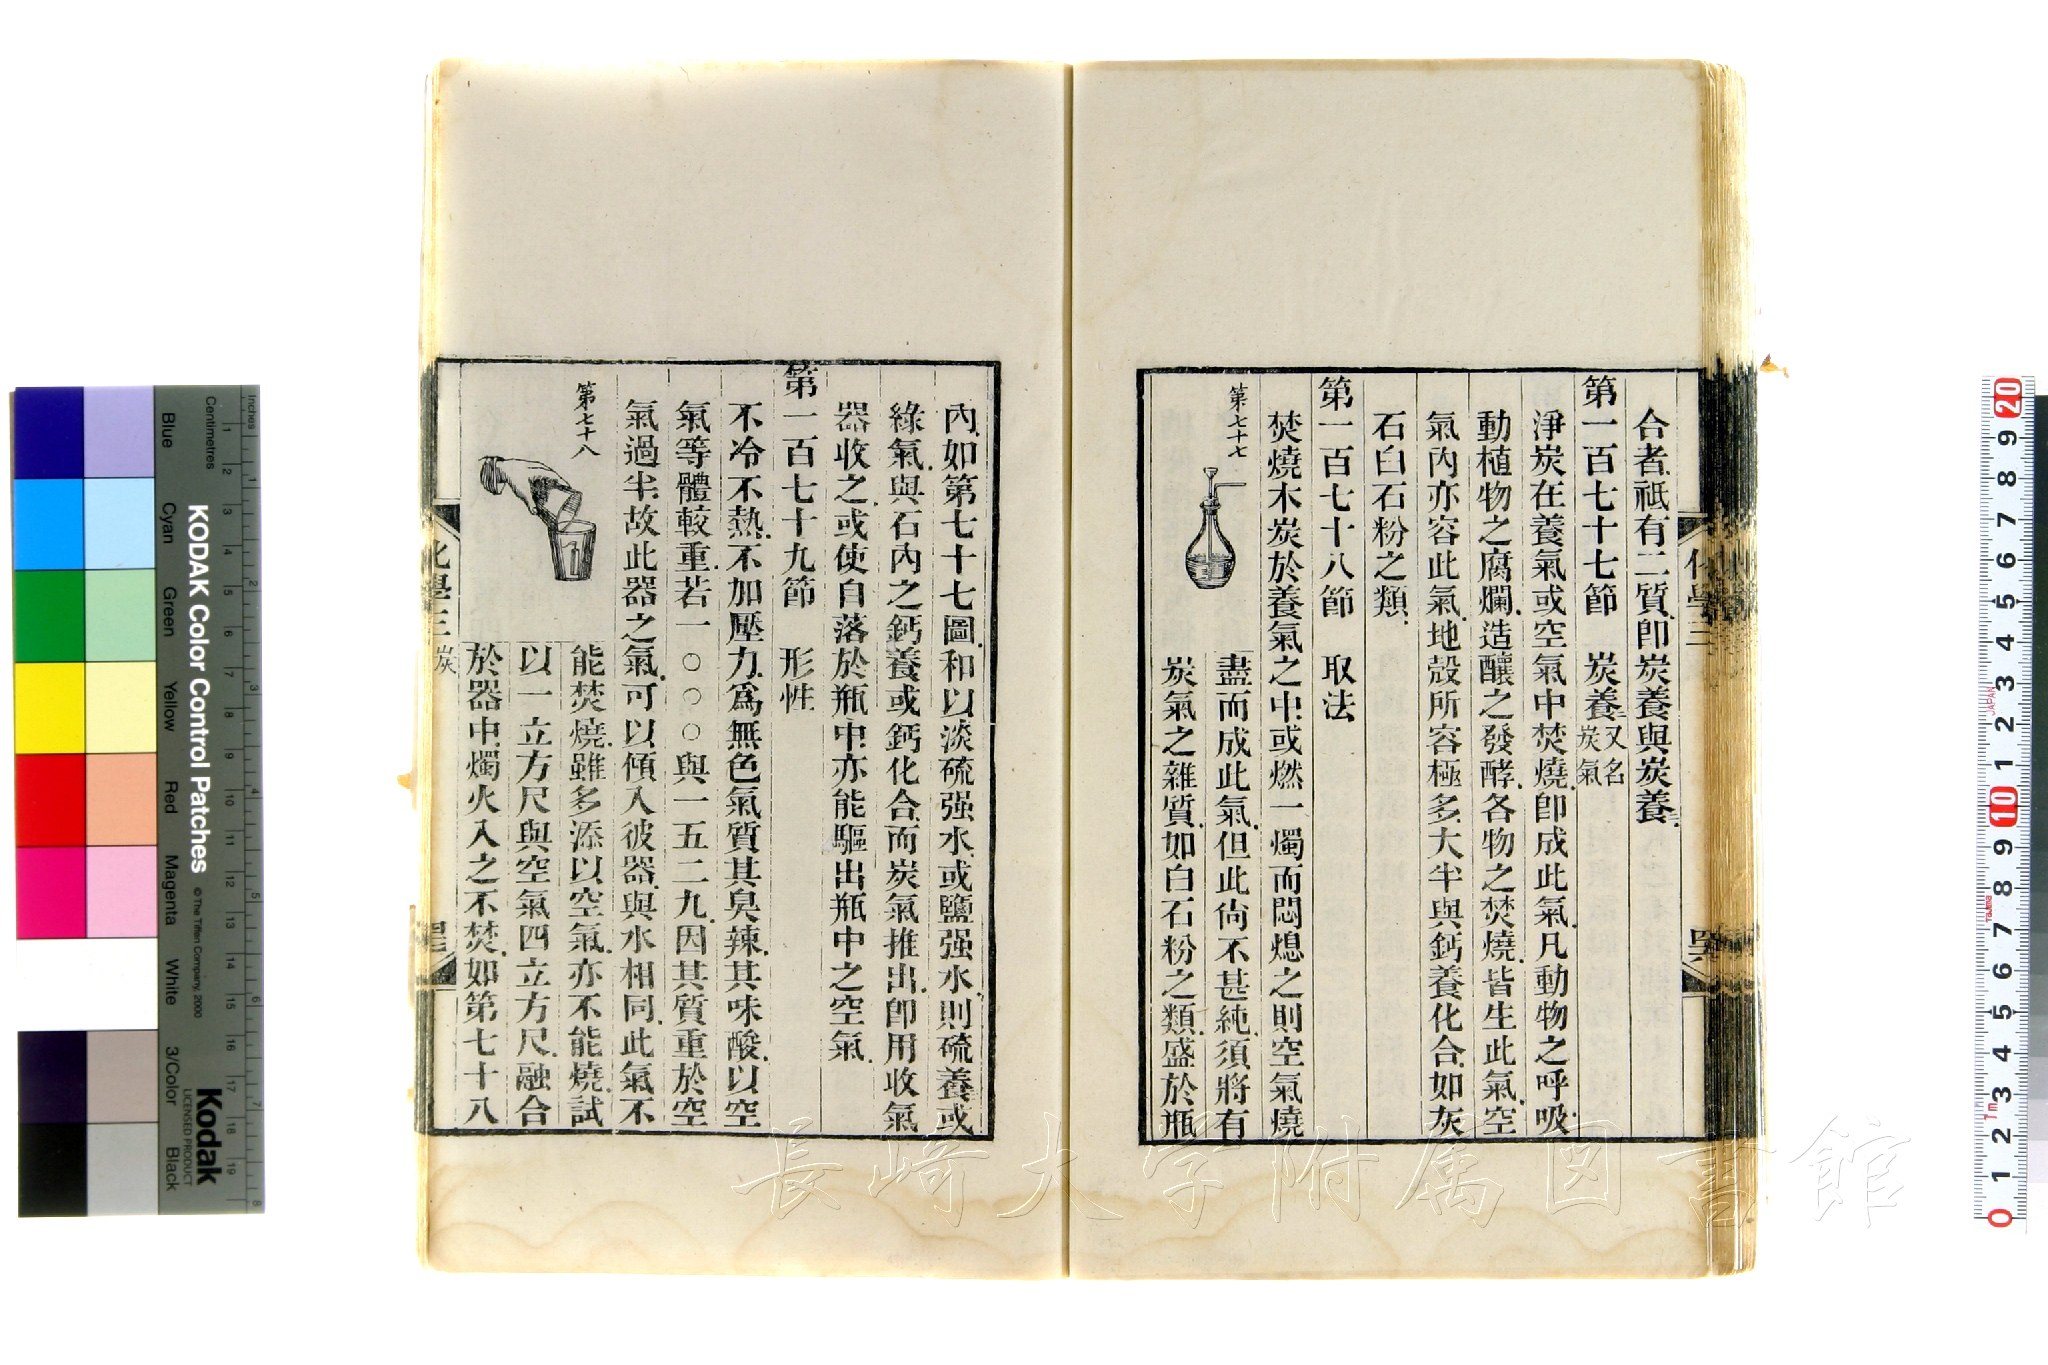 合者祗有二質卽炭養與炭養二
第一百七十七節　炭養二又名炭氣
淨炭在養氣或空氣中焚燒卽成此氣凡動物之呼吸
動植物之腐爛造釀之發酵各物之焚燒皆生此氣空
氣內亦容此氣地殼所容極多大半與鈣養化合如灰
石白石粉之類
第一百七十八節　取法
焚燒木炭於養氣之中或燃一燭而悶熄之則空氣燒
第七十七
盡而成此氣但此尙不甚純須將有
炭氣之雜質如白石粉之類盛於瓶
化學三
內如第七十七圖和以淡硫强水或鹽强水則硫養或
綠氣與石內之鈣養或鈣化合而炭氣推出卽用收氣
器收之或使自落於瓶中亦能驅出瓶中之空氣
第一百七十九節　形性
不冷不熱不加壓力爲無色氣質其臭辣其味酸以空
氣等體較重若一○○○與一五二九因其質重於空
氣過半故此器之氣可以傾入彼器與水相同此氣不
第七十八
能焚燒雖多添以空氣亦不能燒試
以一立方尺與空氣四立方尺融合
於器中燭火入之不焚如第七十八
化學三 炭
長崎大学附属図書館
KODAK Color Control Patches
© The Tiffen Company, 2000
Kodak
LICENSED PRODUCT
Inches
Centimetres
Blue
Cyan
Green
Yellow
Red
Magenta
White
3/Color
Black
1 2 3 4 5 6 7 8 9 10 11 12 13 14 15 16 17 18 19
20 9 8 7 6 5 4 3 2 1 10 9 8 7 6 5 4 3 2 1 0
JAPAN